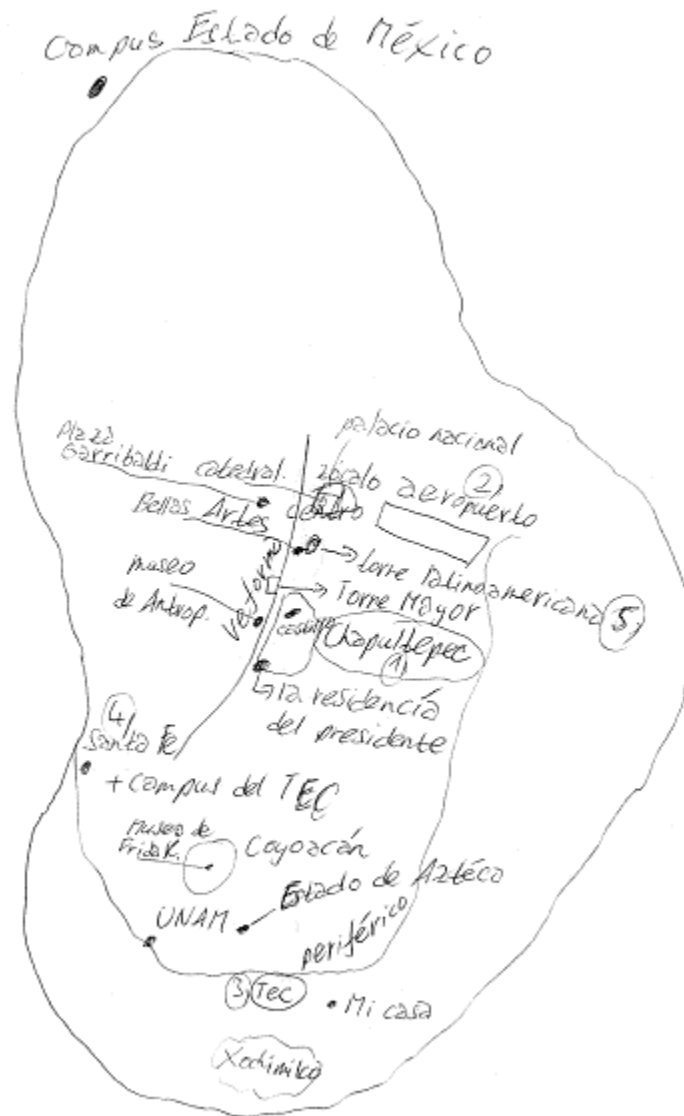 Campus Estado de México
palacio nacional
Plaza
Garribaldi
catedral.
zócalo
aeropuerto
2,
centro
Bellas Artes
torre latinoamericana
5,
museo
de Antrop.
reforma
Torre Mayor
Chapultepec
1,
la residencía
del presidente
4,
Santa Fe
+ campus del TEC
Museo de
Frida K.
Coyoacán
Estado de Aztéca
UNAM
periférico
3, Tec
Mi casa
Xochimilco